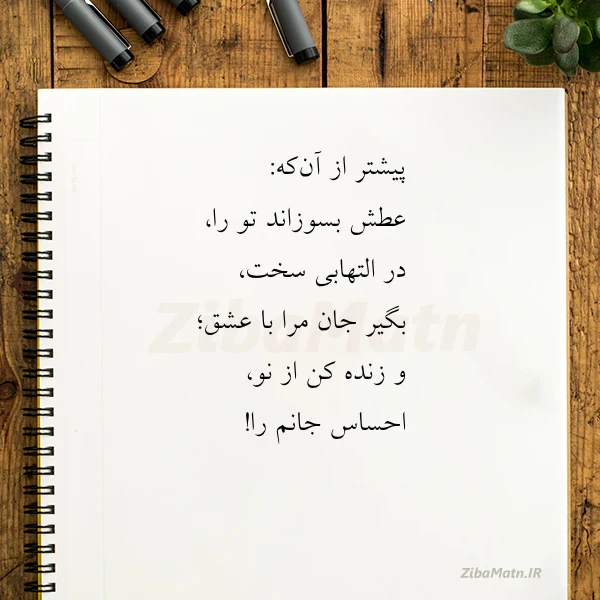 پیشتر از آن‌که:
عطش بسوزاند تو را،
در التهابی سخت،
بگیر جان مرا با عشق؛
و زنده کن از نو،
احساس جانم را!
ZibaMatn
ZibaMatn.IR